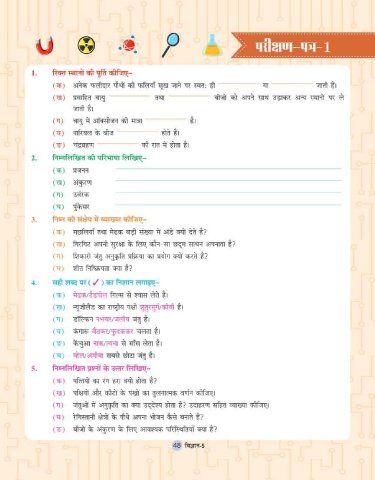 परीक्षण-पत्र-1
1. रिक्त स्थानों की पूर्ति कीजिए-
(क) अनेक फलीदार पौधों की फलियाँ सूख जाने पर स्वतः ही ________ या ________ जाती हैं।
(ख) प्रवाहित वायु ________ तथा ________ बीजों को अपने साथ उड़ाकर अन्य स्थानों पर ले
जाती हैं।
(ग) वायु में ऑक्सीजन की मात्रा ________ है।
(घ) नारियल के बीज ________ होते हैं।
(ङ) चंद्रग्रहण ________ की रात में होता है।
2. निम्नलिखित की परिभाषा लिखिए-
(क) प्रजनन
(ख) अंकुरण
(ग) उर्वरक
(घ) पुंकेसर
3. निम्न की संक्षेप में व्याख्या कीजिए-
(क) मछलियाँ तथा मेढक बड़ी संख्या में अंडे क्यों देते हैं?
(ख) गिरगिट अपनी सुरक्षा के लिए कौन-सा छद्म साधन अपनाता है?
(ग) शिकारी जंतु अनुकृति प्रक्रिया का प्रयोग क्यों करते हैं?
(घ) शीत निष्क्रियता क्या है?
4. सही शब्द पर (✓) का निशान लगाइए-
(क) मेढक/टैडपोल गिल्स से श्वास लेते हैं।
(ख) न्यूजीलैंड का राष्ट्रीय पक्षी शुतुरमुर्ग/कीवी है।
(ग) डॉल्फिन नभचर/जलीय जंतु है।
(घ) कंगारू बैठकर/फुदककर चलता है।
(ङ) केंचुआ नाक/त्वचा से साँस लेता है।
(च) व्हेल/अमीबा सबसे छोटा जंतु है।
5. निम्नलिखित प्रश्नों के उत्तर लिखिए-
(क) पत्तियों का रंग हरा क्यों होता है?
(ख) पक्षियों और कीटों के पंखों का तुलनात्मक वर्णन कीजिए।
(ग) जंतुओं में अनुकृति का क्या उद्देश्य होता है? उदाहरण सहित व्याख्या कीजिए।
(घ) रेगिस्तानी क्षेत्रों के पौधे अपना भोजन कैसे बनाते हैं?
(ङ) बीजों के अंकुरण के लिए आवश्यक परिस्थितियाँ क्या हैं?
48 विज्ञान-5